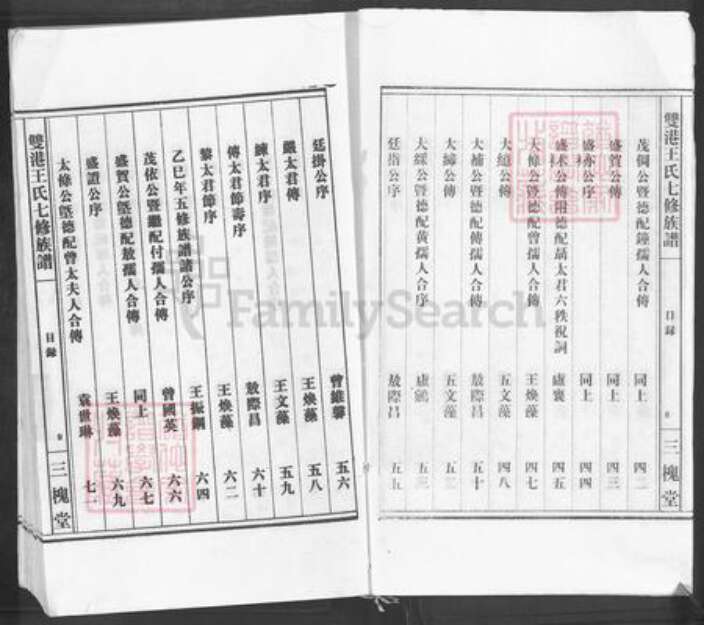 雙港王氏七修族譜 目録 三槐堂
茂倜公暨德配鐘孺人合傳 同上 四二
盛賀公傳 同上 四三
盛亦公序 同上 四四
盛术公傳附德配聶太君六秩祝詞 盧襄 四五
大條公暨德配曾孺人合傳 王煥藻 四七
大繶公傳 五文藻 四八
大補公暨德配傅孺人合傳 敖際昌 五十
大締公傳 五文藻
大綵公暨德配黃孺人合序 盧鶴
廷揩公序 敖際昌 五五
廷掛公序 曾維馨 五六
嚴太君傳 王煥藻 五八
練太君序 王文藻 五九
傅太君節壽序 敖際昌 六十
黎太君節序 王煥藻 六二
乙巳年五修族譜諸公序 王振鋼 六四
茂依公暨繼配付孺人合傳 曾國英 六六
盛賀公暨德配敖孺人合傳 同上 六七
盛證公序 王煥藻 六九
太條公暨德配曾太夫人合傳 袁世琳 七一
雙港王氏七修族譜 目録 三槐堂
FamilySearch